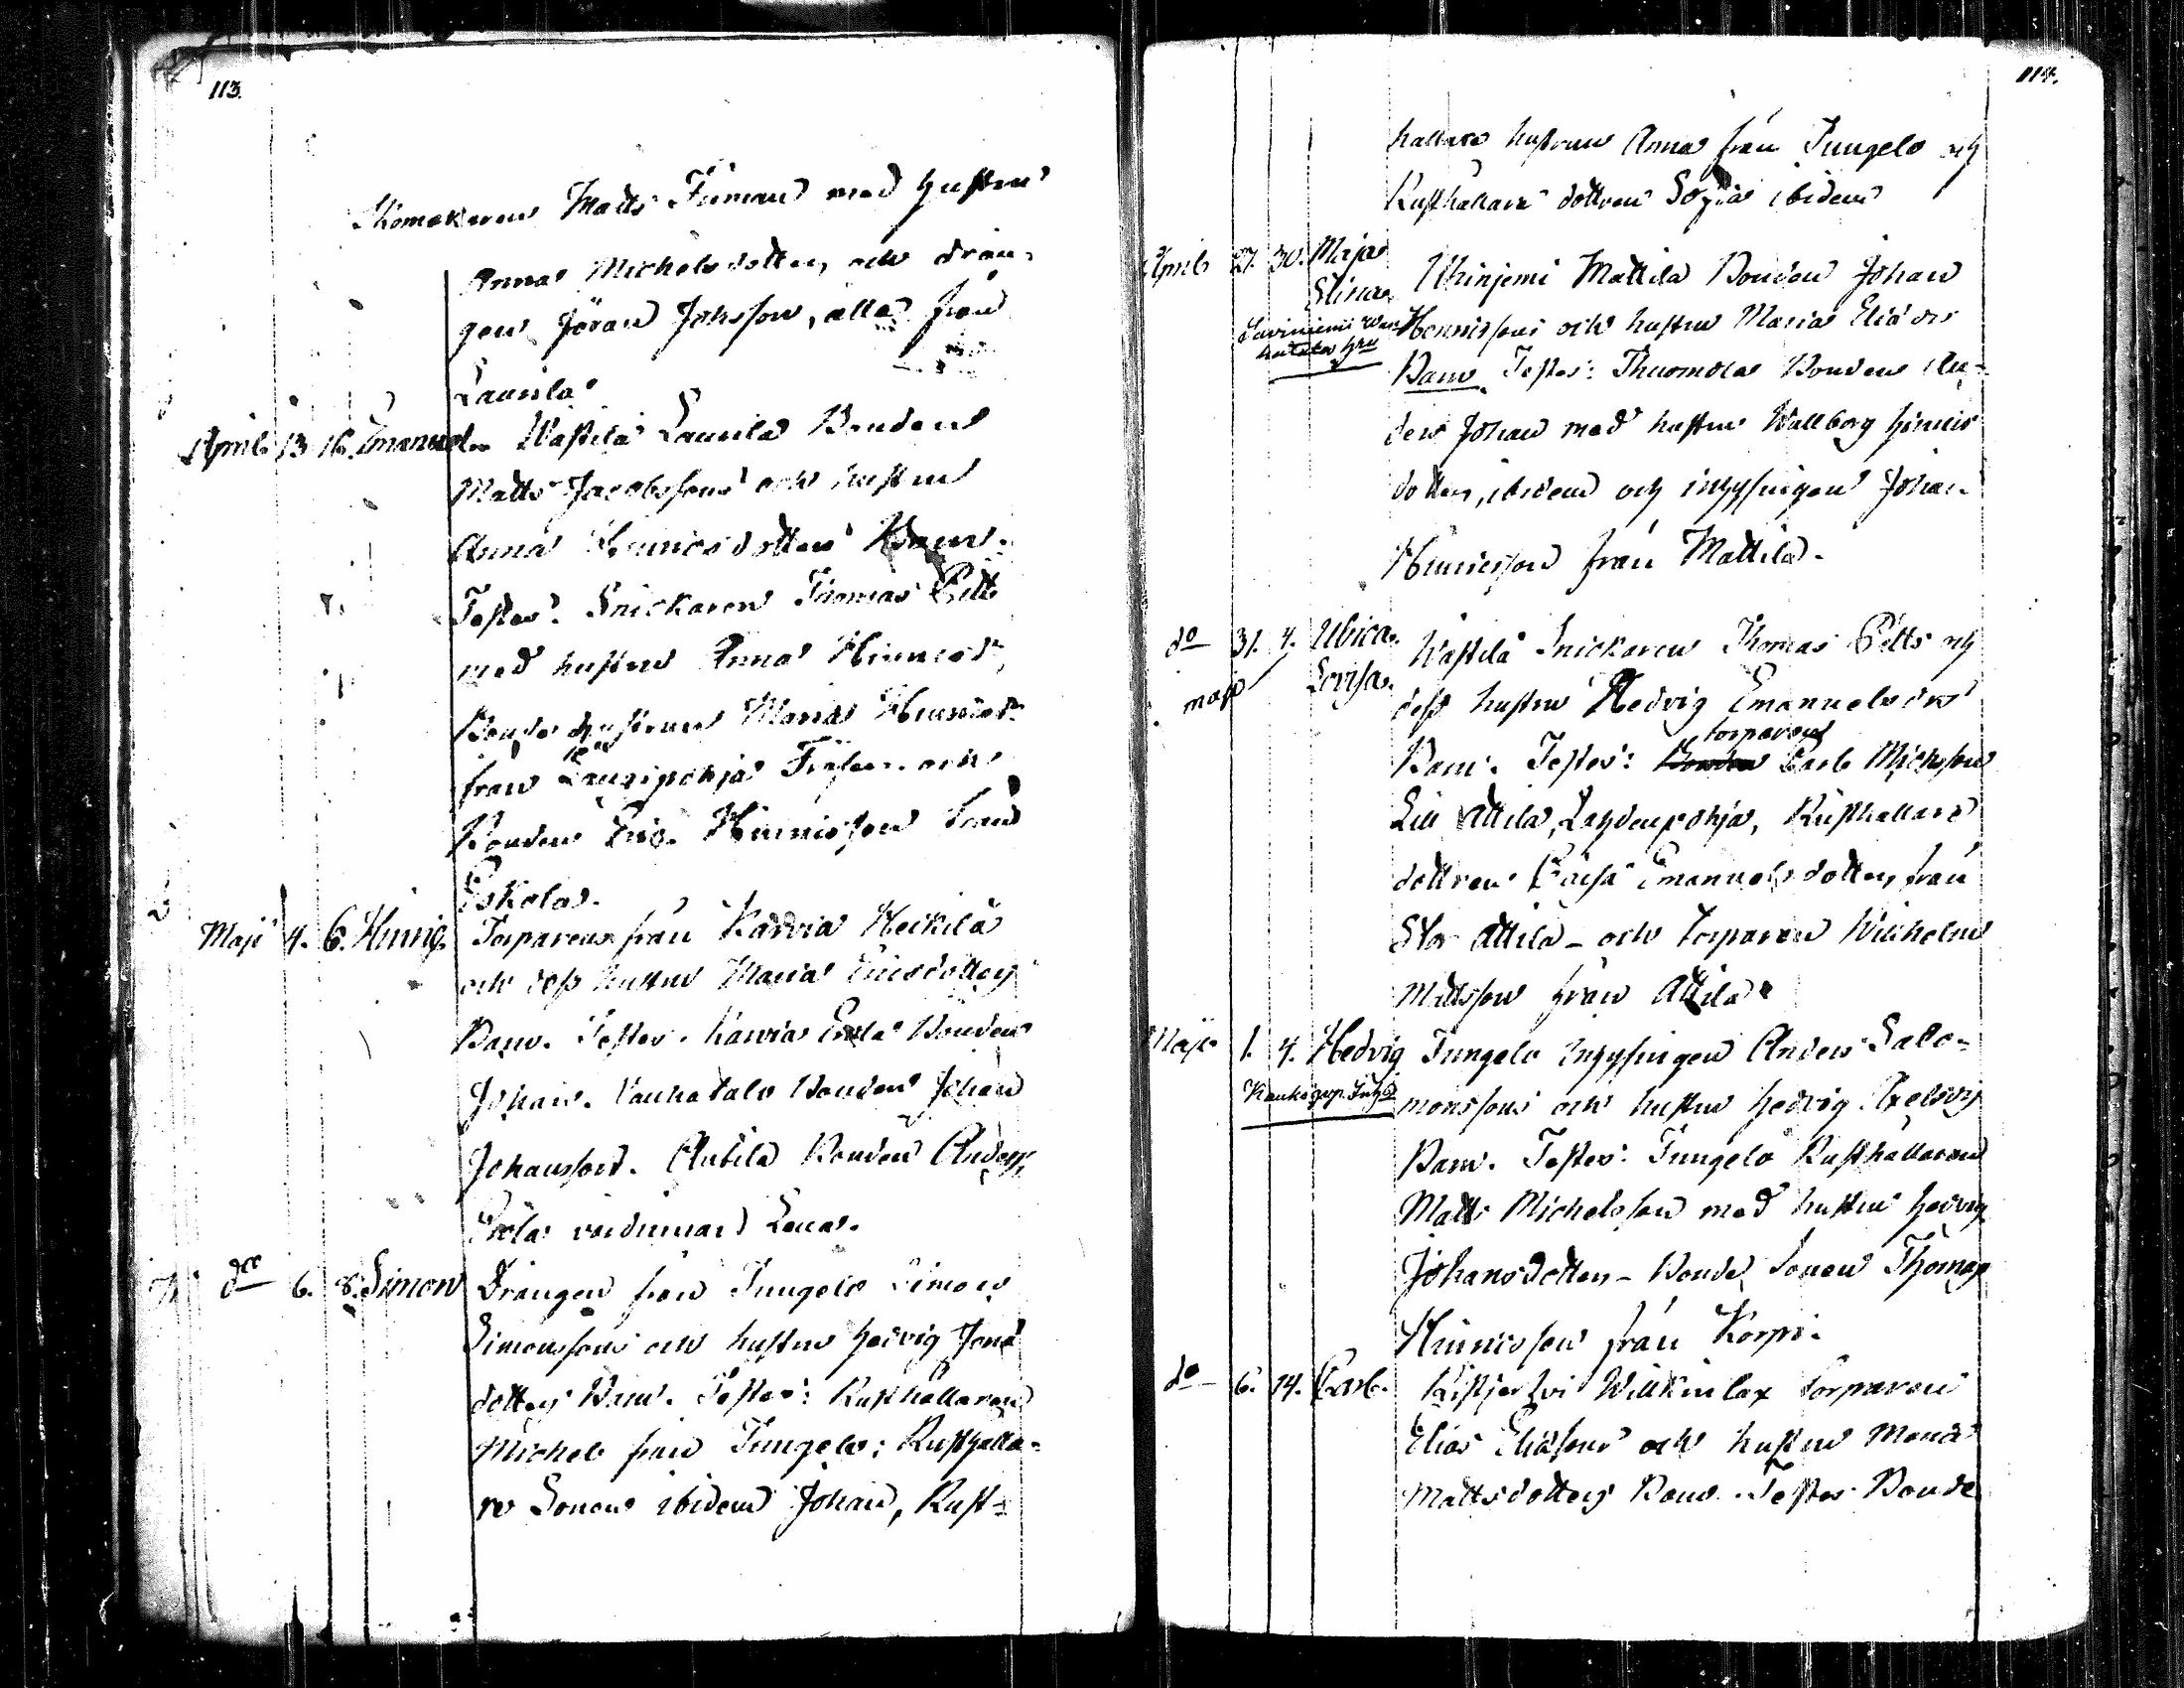 113.
Skomakaren Matts Finman med hustrun
Anna Michelsdotter, och drän-
gen Jöran Johsson, alla från
Laurila
April 13 16. Emanuel. Wästilä Laurila Bonden
Matts Jacobssons och hustrun
Anna Henricsdotters Barn.
Testes: Snickaren Thomas Pett
med hustrun Anna Hinricsdr,
Bonde hustrun Maria Hinricsdr
från Lauripohja och
Bonden Eric Hinricsson från
Eskola.
Maji 4. 6. Hinric. Torparens från Karvia Heikilä
och dess hustru Maria Ericsdotters
Barn. Testes. Karvia Erila Bonden
Johan. Vanhatalo Bonden Johan
Johansson. Antila Bonden Anders,
Lena.
do 6. 8. Simon Drängen från Jungelo Simon
Simonssons och hustrun Hedvig Jons
dotters Barn. Testes: Rusthållaren
Michel från Jungelo; Rusthålla-
re Sonen ibidem Johan, Rust-
114.
hållare hustrun Anna från Jungelo och
Rusthållare dottren Sofia ibidem
April 27. 30. Maja Stina. Uhinjemi Mattila Bonden Johan
Henricssons och hustrun Maria Eliædrs
Barn. Testes: Thuomola Bonden
Johan med hustrun Wallborg Hinrics
dotter, ibidem och inhysingen Johan
Hinricsson från Mattila.
do 31. 4. Ulrica Lovisa. Wästilä Snickaren Thomas Petts och
maji
dess hustru Hedvig Emanuelsdrs
torparen
Barn. Testes: Bonden Carl Michsson
Lill Attila, Lahdenpohja, Rusthållare
dottren Caisa Emanuelsdotter, från
Stor Attila - och torparen Wilhelm
Mattsson från Attila
Maji 1. 4. Hedvig Jungelo Inhysingen Anders Salo-
monssons och hustrun Hedvig
Barn. Testes: Jungelo Rusthållaren
Matts Michelsson med hustrun Hedvig
Johansdotter - Bonde Sonen Thomas
Hinricsson från Korpi.
do 6. 14. Carl. Ristjerfvi Willkinlax torparen
Elias Eliassons och hustrun Maria
Mattsdotters Barn. Testes Bonde